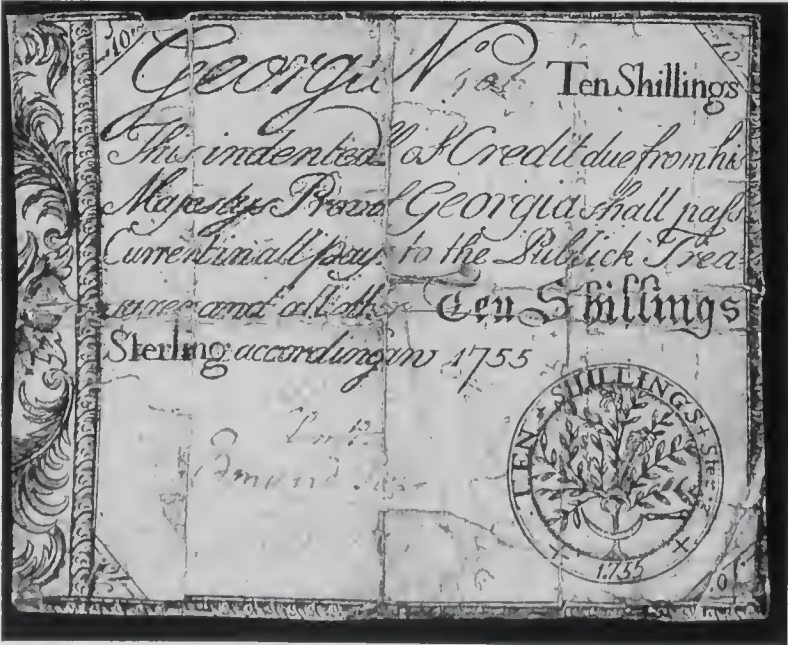 10
Georgia No Ten Shillings
10
This indented Bill of Credit due from his
Majestys Prove of Georgia shall pass
Current in all pays to the Publick Trea
surer and all othr Ten Shillings
Sterling according law 1755
TEN SHILLINGS Sterg
1755
10